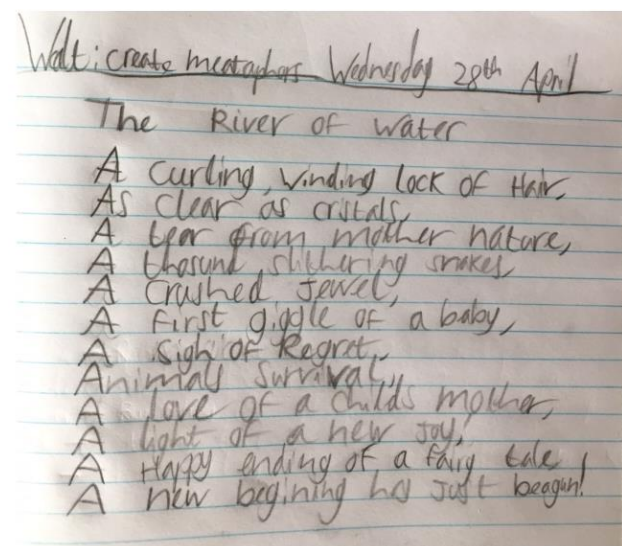 Walt: create meataphors Wednesday 28th April
The River of water
A curling, winding lock of Hair,
As clear as cristals,
A tear from mother nature,
A thosund slithering snakes,
A crushed Jewel,
A first giggle of a baby,
A sigh of Regret,
Animals survival,
A love of a childs mother,
A light of a new joy,
A Happy ending of a fairy tale,
A new begining has just beagun!